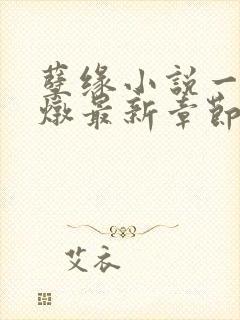 孽缘小説一
燉最新章節
艾衣